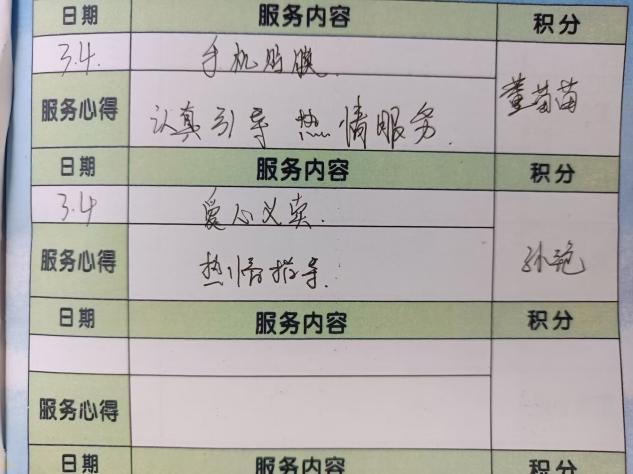 日期 服务内容 积分
3.4. 手机贴膜.
服务心得 认真引导 热情服务. 董苗苗
日期 服务内容 积分
3.4 爱心义卖.
服务心得 热情指导. 孙艳
日期 服务内容 积分
服务心得
日期 服务内容 积分